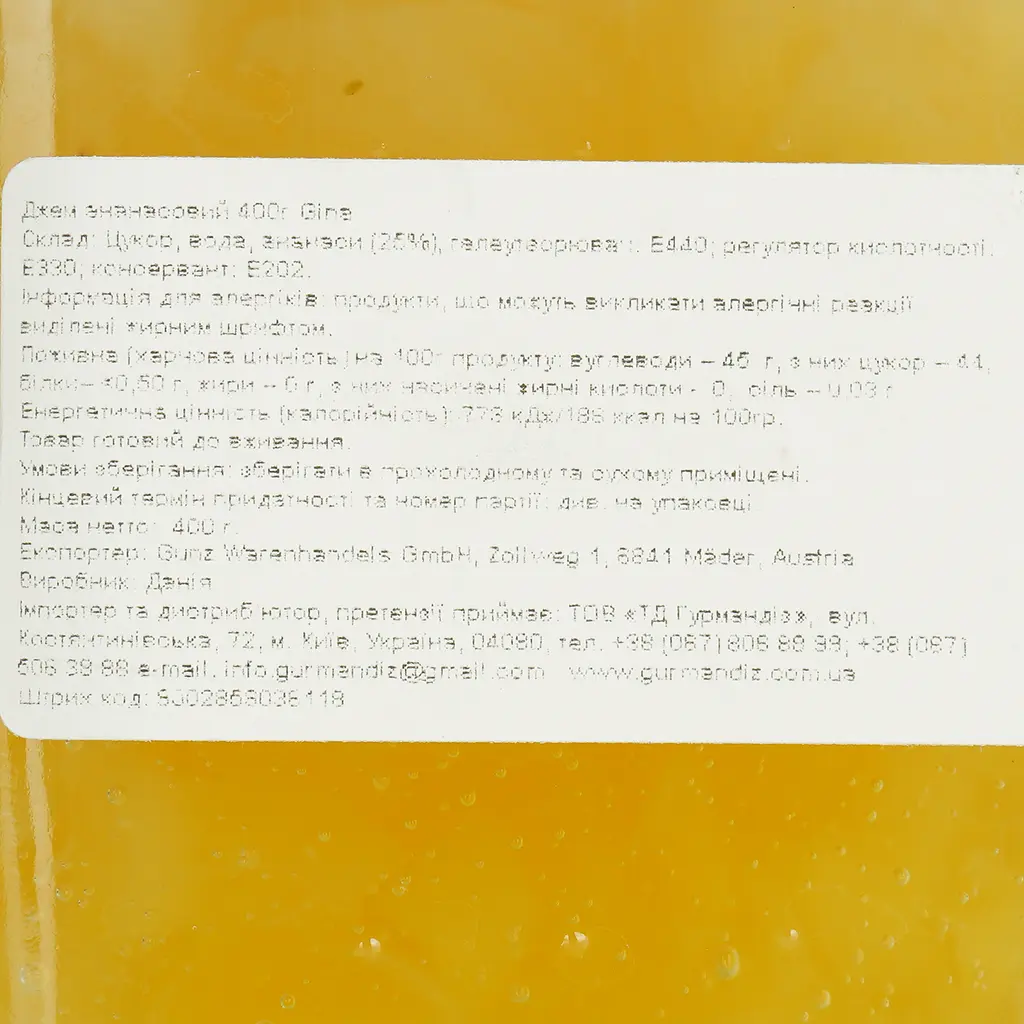 Джем ананасовий 400г Gina
Склад: Цукор, вода, ананаси (25%), Е440; регулятор кислотності:
Е330; консервант: Е202.
Інформація для алергіків: продукти, що можуть викликати алергічні реакції
виділені жирним шрифтом.
Поживна (харчова цінність) на 100г продукту: вуглеводи – з них цукор – 44,
білки– <0,50 г, жири – 0 г, з них насичені жирні кислоти - 0, сіль –
Енергетична цінність (калорійність): ккал на 100гр.
Товар готовий до вживання.
Умови зберігання: зберігати в прохолодному та сухому приміщені.
Кінцевий термін придатності та номер партії: див. на упаковці
Маса нетто: 400 г.
Експортер: Gunz Warenhandels GmbH, Zollweg 1, 6841 Mäder, Austria
Виробник: Данія
Імпортер та дистриб'ютор, претензії приймає: ТОВ «ТД Гурмандіз», вул.
Костянтинівська, 72, м. Київ, Україна, 04080, тел.
e-mail: info.gurmandiz@gmail.com www.gurmandiz.com.ua
Штрих код: